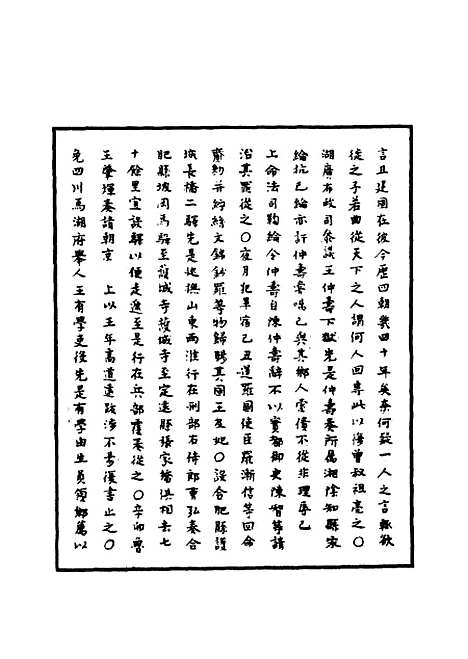 言且建國在彼今歷四朝幾四十年矣奈何茲一人之言輒欲
徙之子若曲從天下之人謂何人回專此以復曾叔祖亮之○
湖廣布政司參議王仲壽下獄先是仲壽奏所屬湘陰知縣家
綸抗己綸亦訐仲壽嘗嗔己與其鄉人索債不從非理辱己
上命法司鞫綸令仲壽自陳仲壽辭不以實都御史陳智等請
治其罪從之○夜月犯畢宿己丑遣羅國使臣羅漸信等回命
齎勑并紵絲文錦鈔羅等物歸賜其國王及妃○設合肥縣護
城長橋二驛先是巡撫山東兩淮行在刑部右侍郎曹弘奏合
肥縣坡岡馬驛至護城寺護城寺至定遠縣張家橋俱相去七
十餘里宜設驛以便走遞至是行在兵部覆奏從之○辛卯魯
王肇煇奏請朝京 上以王年高道遠跋涉不易復書止之○
免四川馬湖府舉人王有學吏役先是有學由生員領鄉薦以